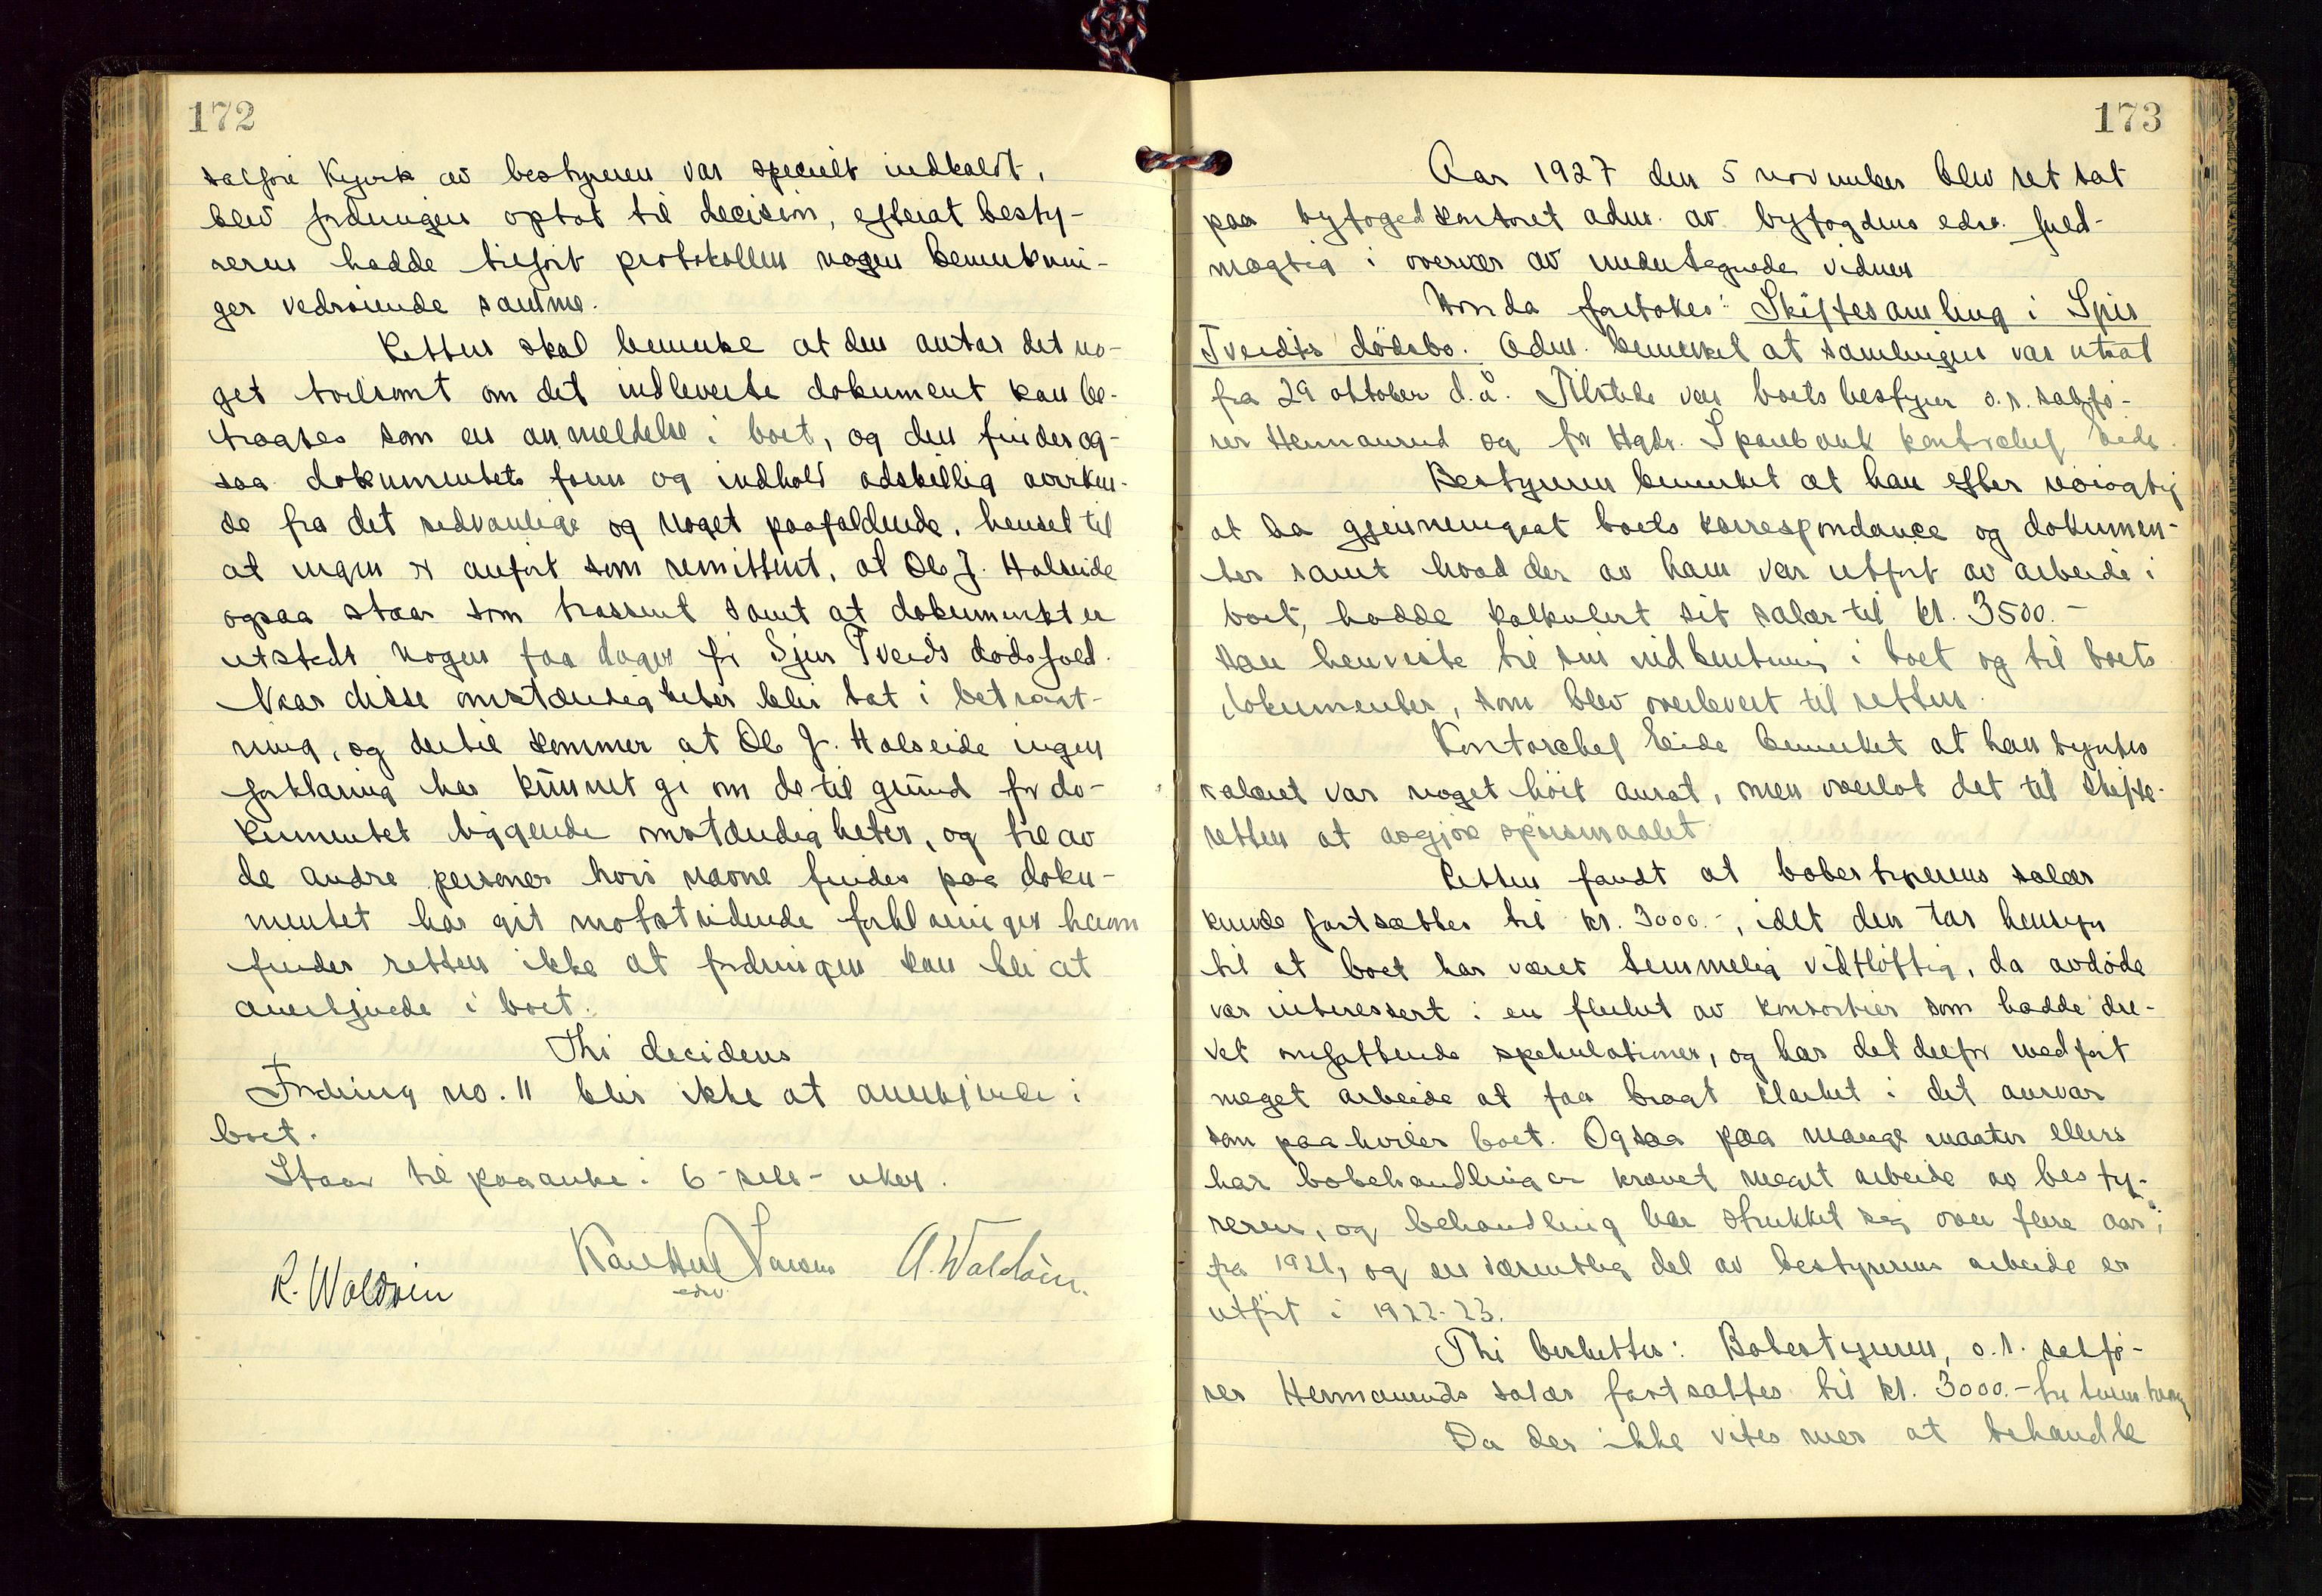 172
salføre Kyvik av bestyreren var specielt indkaldt,
blev fordringen optat til decision, efterat besty-
reren hadde tilført protokollen nogen bemerknin-
ger vedrørende samme.
Retten skal bemerke at den antar det no-
get tvilsomt om det indleverte dokument kan be-
tragtes som en anmeldelse i boet, og den finder og-
saa dokumentets form og indhold adskillig avviken-
de fra det sedvanlige og noget paafaldende, henset til
at ingen er anført som remittent, at Ole J. Halseide
ogsaa staar som trassent samt at dokumentet er
utstedt nogen faa dager før Sjur Tveids dødsfald.
Naar disse omstændigheter blir tat i betragt-
ning, og dertil kommer at Ole J. Halseide ingen
forklaring har kunnet gi om de til grund for do-
kumentet liggende omstændigheter, og til av
de andre personer hvis navne findes paa doku-
mentet har git motstridende forklaringer herom
finder retten ikke at fordringen kan bli at
anerkjende i boet.
Thi decideres
Fordring no. 11 blir ikke at anerkjende i
boet.
Staar til paaanke i 6-seks-uker.
R. Waldvin
edsv.
A. Waldvin.
173
Aar 1927 den 5 november blev ret sat
paa byfogedkontoret adm. av byfogdens edsv. fuld-
mægtig i overvær av undertegnede vidner
Hvorda foretokes: Skiftesamling i Sjur
Tveidts dødsbo. Adm. bemerket at samlingen var utsat
fra 29 oktober d.å. Tilstede var boets bestyrer o.r. sakfø-
rer Hermanrud og for Hgds. Sparebank kontorchef Eide.
Bestyreren bemerket at han efter nøiagtig
at ha gjennemgaat boets korrespondance og dokumen-
ter samt hvad der av ham var utført av arbeide i
boet, hadde kalkulert sit salær til kr. 3500.-
Han henviste til sin indberetning i boet og til boets
dokumenter, som blev overlevert til retten.
Kontorchef Eide bemerket at han syntes
salæret var noget høit ansat, men overlot det til skifte-
retten at avgjøre spørsmaalet.
Retten fandt at bobestyrerens salær
kunde fastsættes til kr. 3000.-, idet den tar hensyn
til at boet har været temmelig vidtløftig, da avdøde
var interessert i en flerhet av konsortier som hadde dre-
vet omfattende spekulationer, og har det derfor medført
meget arbeide at faa bragt klarhet i det ansvar
som paahviler boet. Ogsaa paa mange maater ellers
har bobehandlingen krævet meget arbeide av besty-
reren, og behandling har strukket seg over flere aar,
fra 1921, og en væsentlig del av bestyrerens arbeide er
utført i 1922-23.
Thi besluttes: Bobestyreren, o.r. sakfø-
rer Hermanruds salær fastsættes til kr. 3000.-
Da der ikke vites mer at behandle